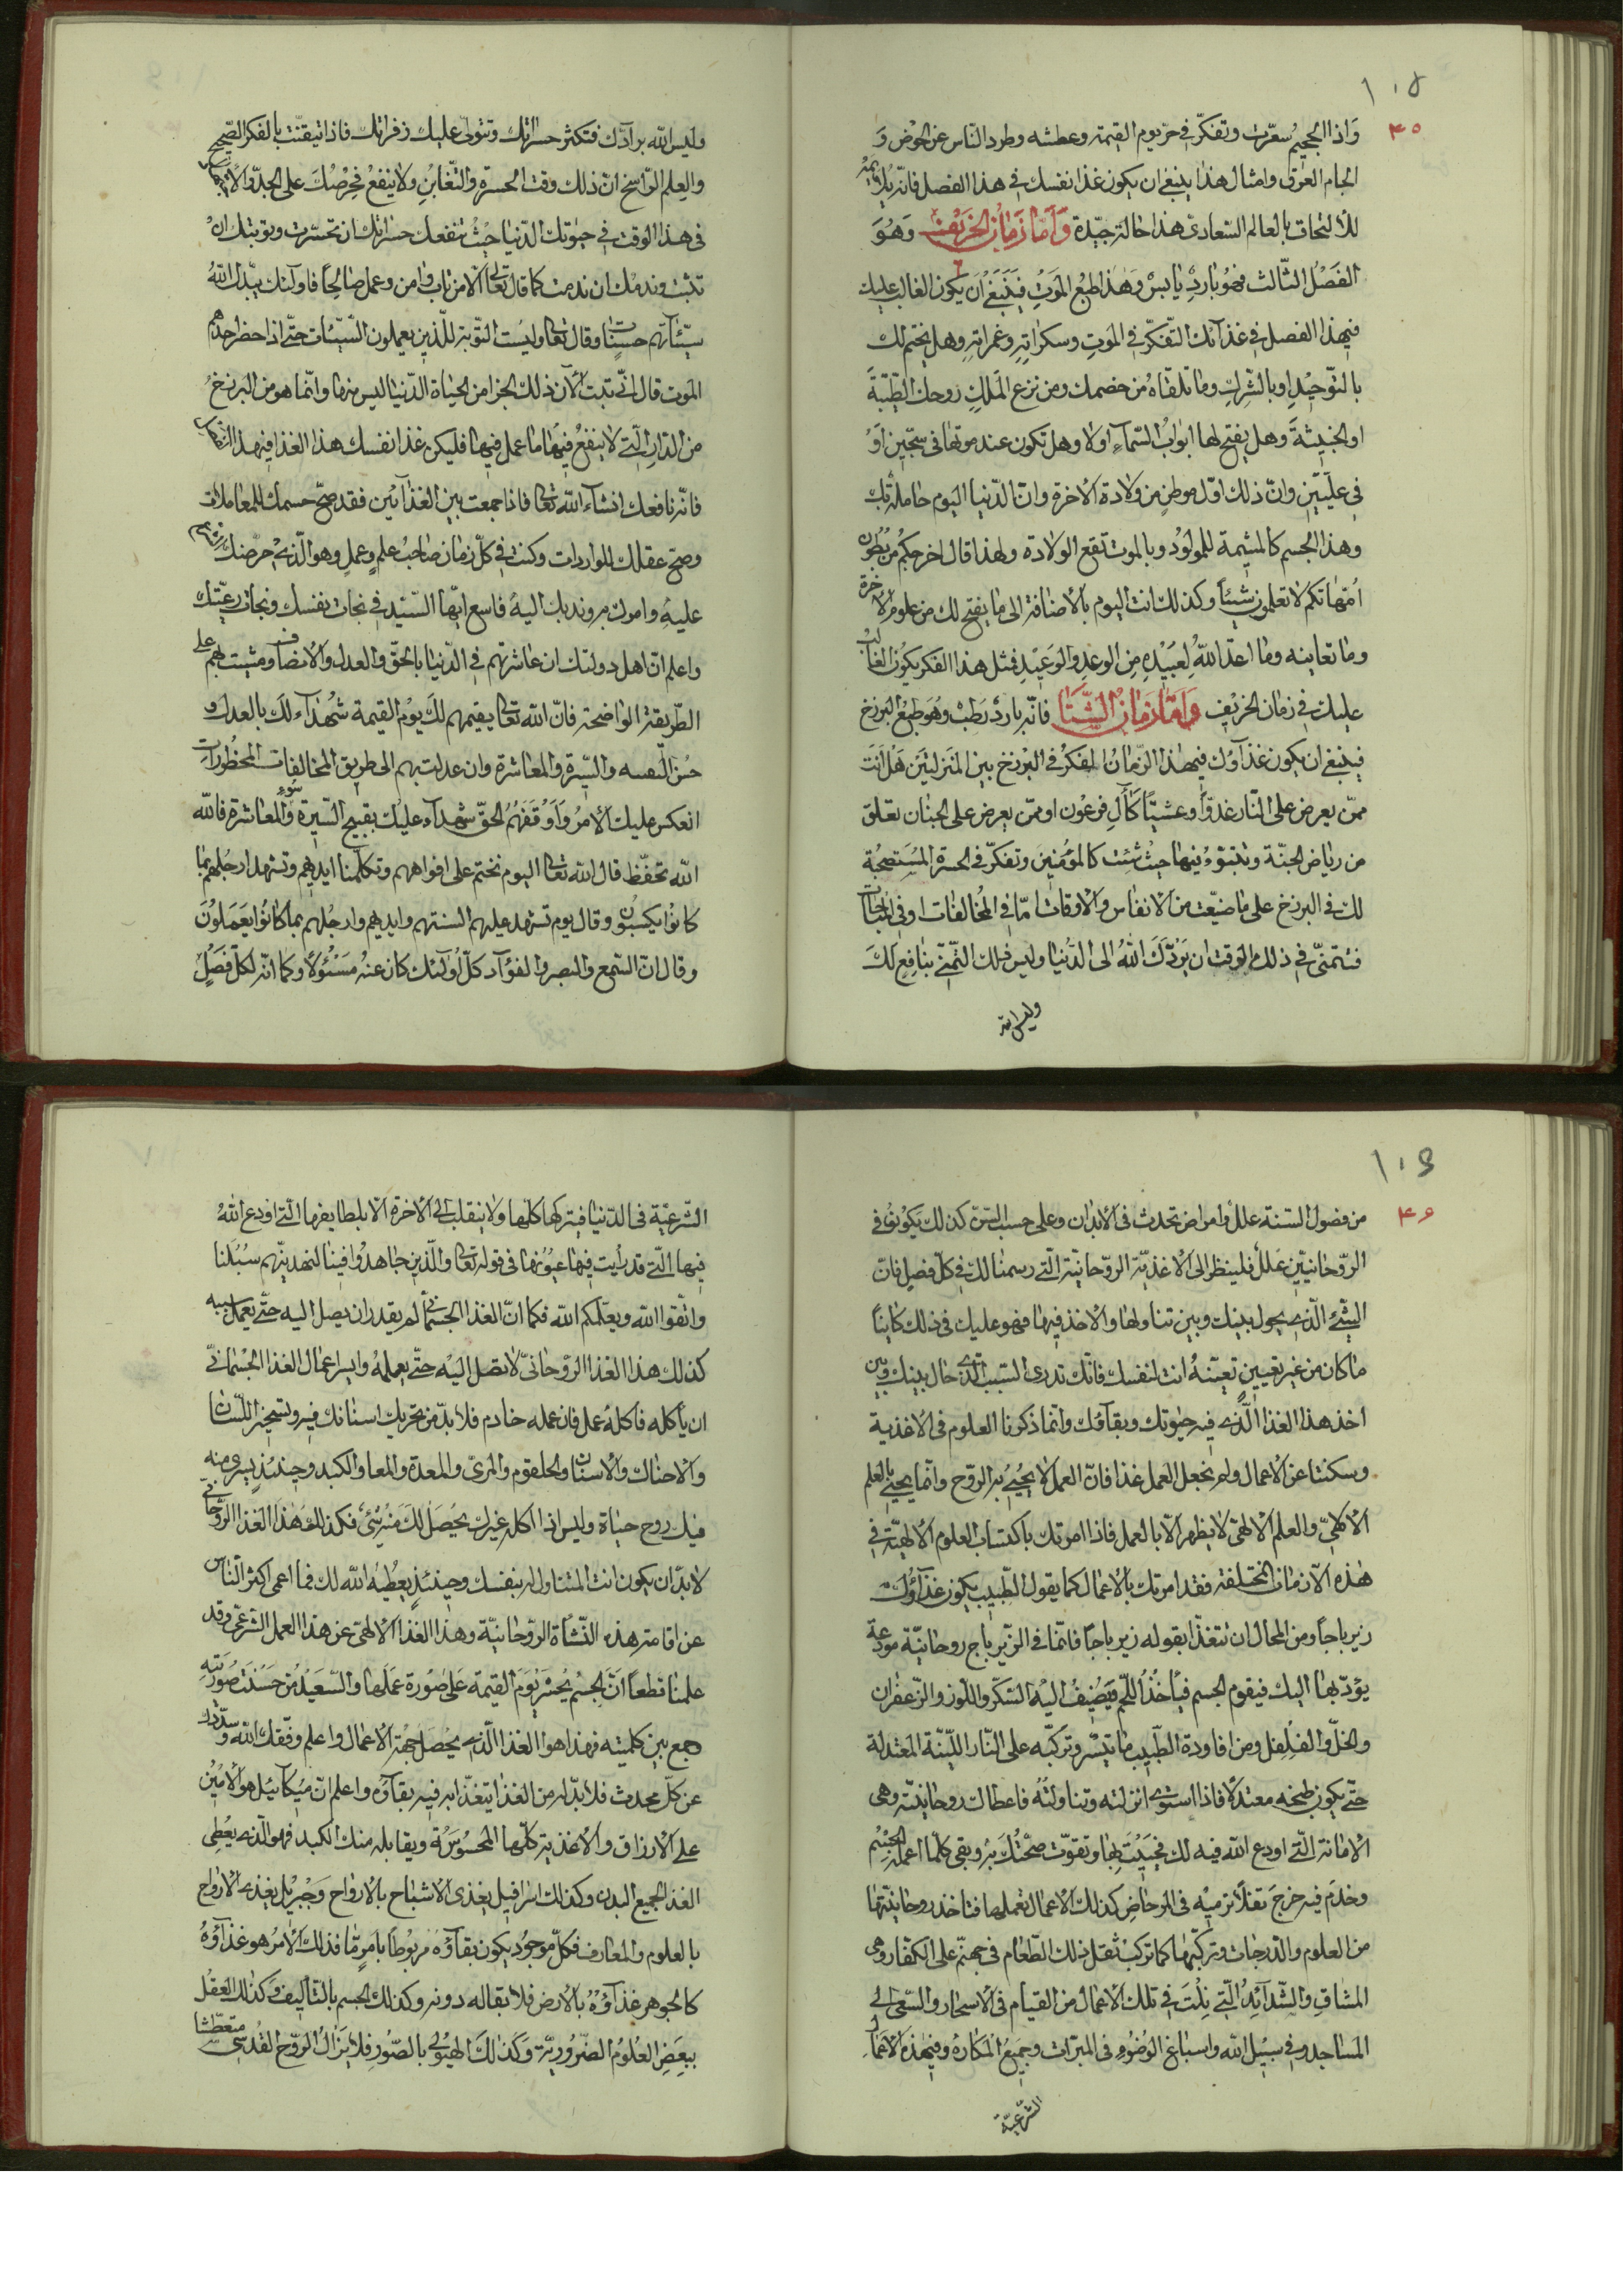 ١٠٥
٤٥
وَاذا الجحيمُ سُعّرت وتفكّر في حرّ يوم القيمة وعطشه وطرد النّاس عن الحوض وَ
الجام العرق وامثال هذا ينبغي ان يكون غذا نفسك في هذا الفصل فانّه
للالتحاق بالعالم السّعاديّ هذا حالة جيّدة وَامّا زمَان الخريف وَهُوَ
الفَصْل الثّالث فهُو بارد يابس وَهٰذا طبع المَوتِ فيَنبَغي اَن يَكون الغالب عليك
في هذا الفصل في غذائك التّفكّر في المَوتِ وسكراتِهِ وغمراتِهِ وهل يختم لك
بالتّوحيْد او بالشّركِ وما تلقاهُ من خصمك ومن نزع المَلَكِ روحك الطّيّبَةَ
او الخبيثةَ وهل يفتح لها ابوابُ السّماءِ اولا وهل تكون عند موتها في سجّينٍ اَوْ
في علّيّين وانّ ذلك اوّل موطنٍ من ولادة الاخرة وانّ الدّنيا اليوم حاملة بك
وهذا الجسم كالمشيمة للمولوُد وبالموت تقع الولادة ولهذا قال اخرجكم من بُطون
اُمّهاتكم لا تعلمون شيئاً وكذلك انت اليوم بالاضافة الى ما يفتح لك من علوم الاخرة
وما تعاينه وما اعدّ اللّهُ لِعَبيْدِهِ مِن الوعدِ والوَعيْدِ فمثل هذا الفكر يكوُن الغالب
عليك في زمان الخريف وَامّا زمَانُ الشّتَا فانّه باردٌ رَطبٌ وهُوَ طبْعُ البرزخ
فينبغي ان يكون غذاؤك في هذا الزّمانُ الفكْر في البَرْزخ بين المنزلتَين هَل اَنْت
ممّن يعرض على النّار غدوّاً وعشيّاً كاٰلِ فرعَون او ممّن يعرض على الجنان تعلق
من رياض الجنّة وتتبّوءُ فيها حيثُ شئت كالمؤمنِيْنَ وتفكّر في الحسرة المُسْتصحبَة
لك في البرزخ على ما ضيّعت من الانفاس والاوقات امّا في المُخالفات او في المباحات
فتتمنّى في ذلك الوقت ان يَرُدَّكَ اللّهُ الى الدّنيا وليس ذلك التّمنّي بنافِعٍ لكَ
وليس اللّه
وليس اللّه برادّك فتكثر حسراتك وتتولى عليك زفراتك فاذا تيقنّت بالفكر الصّحيح
والعِلم الرّاسخ انّ ذلك وقت الحسرة والتّغابُنِ ولا ينفعُ فحرّضْك على الجدّ
في هذا الوقت في حيوتك الدّنيا حيثُ تنفعك حسراتك ان تحسّرت وتوبتك انْ
تبت وندمك ان ندمت كما قال تعالى اِلّا من تاب واٰمن وعمل صَالحِاً فاولئك يبدّل اللّهُ
سيّئاتهم حسناتٍ وقال تعالى وليست التّوبة للّذين يعملون السّيّئات حتّى اذا حضر احدهم
الموت قال انّي تبت الاٰن ذلك الجزا من الحياة الدّنيا ليس منها وانّما هو من البرزخُ
من الدّار الّتي لا ينفع فيها ما عمل فيها فليكن غذا نفسك هذا الغذا في هذا الزمان
فانّه نافعك انشآء اللّه تعالى فاذا جمعت بين الغذائين فقد صحّ جسمك للمعاملات
وصحّ عقلك للواردات وكنت في كلّ زمان صَاحبَ علمٍ وعملٍ وهو الّذي حرّضك
عليْهِ وامرك به وندبك اليهُ فاسع ايّها السّيّد في نجات نفسك ونجات رعيّتك
واعلم انّ اهل دولتك ان عاشرتهم في الدّنيا بالحقّ والعدل والانصاف ومشيت بهم على
الطّريقة الواضحة فانّ اللّه تعالى يقيمهم لكَ يوْم القيمة شُهَداٰءَ لك بالعدل و
حُسْن السّيرة والمعاشرة وان عدلت بهم الى طريق المخالفات المحظورات
انعكس عليك الأمرُ وَاَوْقَفَهُمُ الحقّ شهدآء عليك بقبيح السّيرة وسوءِ المعاشرة فاللّه
اللّه تحفّظ قال اللّه تعالى اليوم نختم على افواههم وتكلّمنا ايديهم وتشهد ارجُلهم بما
كانوُا يكسبون وقال يوم تشهد عليهم السنتهم وايديهم وارجُلهم بما كانوُا يعمَلوُنَ
وقال انّ السّمع والبصر والفؤآد كلّ اُولئك كان عنْهُ مسْئوُلاً وكما انّه لكلّ فصْلٍ
١٠٦
٤٦
من فصول السّنة عللٌ وامراض تحدث في الأبدان وعلى حسب السّنّ كذلك يكوُن في
الرّوحانيّين عللٌ فلينظر الى الاغذيّة الرّوحانيّة الّتي رسمنا لك في كلّ فصلٍ فانّ
الشّيء الّذي يحول بينك وبين تناولها والاخذ فيها فهو عليك في ذلك كاينًا
ما كان من غير تعيينٍ تعيّنهُ انت لنفسك فانّك تدري السّبب الّذي حال بينك وبين
اخذ هذا الغذا الّذي فيه حيٰوتك وبقآؤك وانّما ذكرنا العلوم في الاغذية
وسكتنا عن الاعمال ولم نجعل العمل غذا فانّ العمل لا يُحْيي به الرّوح وانّما يحيي بالعلم
الالٰهيّ والعلم الالٰهيّ لا يظهر الّا بالعمل فاذا امرتك باكتساب العلوم الالٰهيّة في
هٰذه الازمان المختلفة فقد امرتك بالاعمال كما يقول الطّبيب يكون غذآؤك
زيرباجاً ومن المحال ان تتغذّا بقوله زيرباجاً فانّما في الزّيرباج روحانيّة مودعة
يؤدّيها اليك فيقوم الجسم فيأخُذ اللّحم ويضيف اليْه السّكّر واللّوز والزّعفران
والخلّ والفلفل ومن افاودة الطّيب ما تيسّر وتركّبه على النّار اللّيّنة المعتدلة
حتّى يكون طبخه معتدلاً فاذا استوى انزلته وتناولتَهُ فاعطاك روحانيّته وهي
الامانة الّتي اودع اللّه فيه لك فحييْت بها وتقوّت صحّتُك به وبقي كلّما اعمله الجسْم
وخدَم فيه خرج ثفلاً ترميْه في المرحاضِ كذلك الاعمال تعملها فتاخذ روحانيّتها
من العلوم والدّرجات وتركّبها كما تركبْ ثفل ذلك الطّعام في جهنّم على الكفّار وهي
المشاقّ والشّدائِدُ الّتي نِلْتَ في تلك الاعمال من القيام في الاسحار والسّعي الى
المساجد وفي سبيْل اللّه واسباغ الوُضوُءِ في المبرّات وجَميْعُ المكارهُ وفي هٰذه الاعمال
الشّرعيّة
الشّرعيّة في الدّنيا فيتركها كلّها ولا ينقلب الى الاخرة الّا بلطايفها الّتي اودع اللّهُ
فيها الّتي قد رأيت فيها عيوُنها في قوله تعالى والّذين جاهدُوا فينا لنهدينّهم سُبُلنا
واتّقوا اللّه ويعلّمكم اللّه فكما انّ الغذا الجسماني لم يقدر ان يصل اليه حتّى يعمل سببه
كذلك هذا الغذا الرّوحانيّ لا تصل اليْه حتّى يعملهُ وايسر اعمال الغذا الجُسْمانيّ
ان يأكله فاكلهُ عمل فان عمله خادم فلا بدّ من تحريك اسنانك فيه وتسخير اللّسان
والاحناك والاسنان والحلقوم والمرئ والمعدة والمعا والكبد وحينئذٍ يسري منه
فيك روح حياة وليس اذا اكله غيرك يحُصَل لكَ منهُ شئ فكذلك هٰذا الغذا الرّوحانيّ
لابدّ ان يكون انت المتناول له بنفسك وحينئذٍ يعُطيْهُ اللّه لك فما اعمى اكثر النّاس
عن اقامة هذه النّشأة الرّوحانيّة وهذا الغذا الالٰهيّ عن هذا العمل الشّرعيّ وقد
علمنا قطعاً انّ الجُسْم يُحشر يَومَ القيمة علىٰ صُورة عَمَلها والسّعيْد من حَسُنَت صُورَته
جمع بين كلميته فهذا هو الغذا الّذي يحُصَل جهة الاعمال واعلم وفّقك اللّه وسدّدك
عن كلّ محدث فلابدّ له من الغذا يتغذّا به فيه بقاؤه واعلم انّ ميكائيْل هو الأميْن
على الارزاق والاغذية كلّها المحسُوسَة ويقابله منك الكبد فهو الّذي يعُطي
الغذا لجميع البدن وكذلك اسرافيل يغذّي الاشباح بالارواح وَجبريْل يغذي الارْواح
بالعلوم والمعارف فكلّ موجوُد يكون بقآؤه مربوُطاً بامرٍ مّا فذلك الأمرُ هو غذآؤهُ
كالجوهر غذآؤهُ بالارض فلا بقا له دونه وكذلك الجسم بالتّأليف وَكذلك العقْل
ببعضِ العُلوُم الضّروُريّة وَكَذلكَ الهيُوليٰ بالصّوُر فلا يَزالُ الرّوح القُدسى متعطّشا